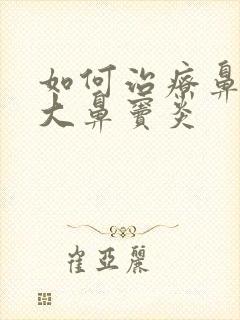 如何治療鼻
大鼻竇炎
崔亞麗